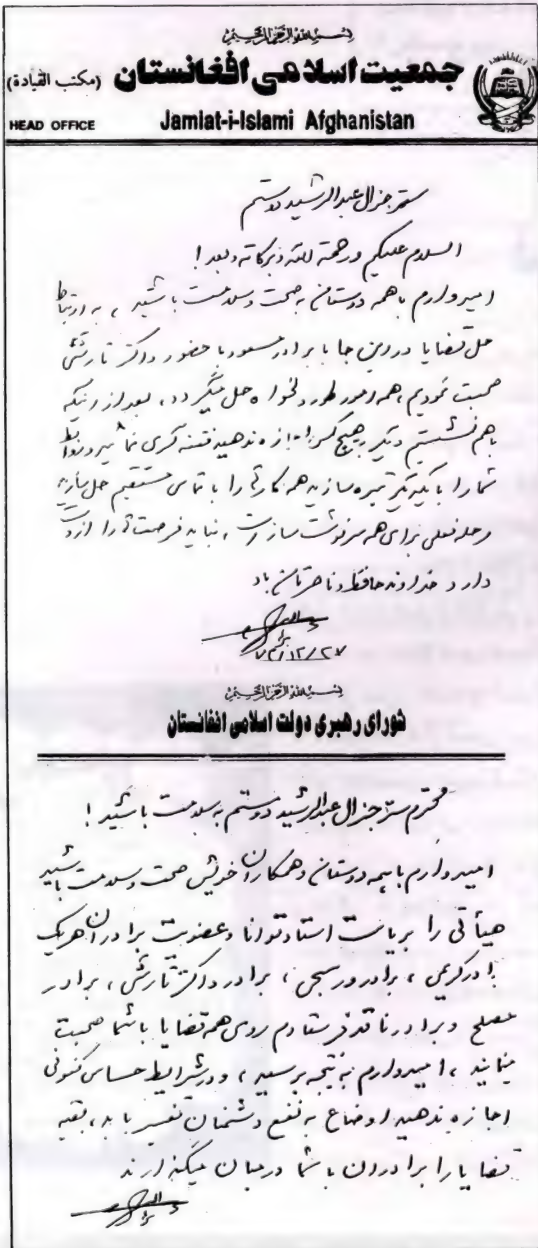 بسم الله الرحمن الرحیم
جمعیت اسلامی افغانستان (مکتب القیادة)
HEAD OFFICE Jamlat-i-Islami Afghanistan
ستر جنرال عبدالرشید دوستم
السلام علیکم ورحمة الله وبرکاته وبعد!
امیدوارم باهمه دوستان به صحت وسلامت باشید ، به ارتباط
حل قضایا دراین جا با برادر مسعود با حضور داکتر تارشی
صحبت نمودیم ، همه امور طور دلخواه حل میگردد ، بعد از اینکه
باهم نشستیم دیگر به هیچ کس اجازه ندهید فتنه گری نماید و روابط
شما را با یکدیگر تیره سازید همه کارها را با تماس مستقیم حل سازید
مرحله فعلی برای همه سرنوشت ساز است ، نباید فرصت ها را از دست
داد خداوند حافظ وناصرتان باد
۷۲/۱۲/۲۷
بسم الله الرحمن الرحیم
شورای رهبری دولت اسلامی افغانستان
محترم ستر جنرال عبدالرشید دوستم به سلامت باشید !
امیدوارم باهمه دوستان وهمکاران خویش صحت وسلامت باشید
هیأتی را بریاست استاد توانا وعضویت برادران هریک
برادر کریمی ، برادر ورسجی ، برادر داکتر تارشی ، برادر
مصلح وبرادر ناقد فرستادم روی همه قضایا باشما صحبت
مینمایند ، امیدوارم به نتیجه برسید ، ودر شرایط حساس کنونی
اجازه ندهید اوضاع به نفع دشمنان تغییر یابد ، بقیه
قضایا را برادران با شما درمیان میگذارند